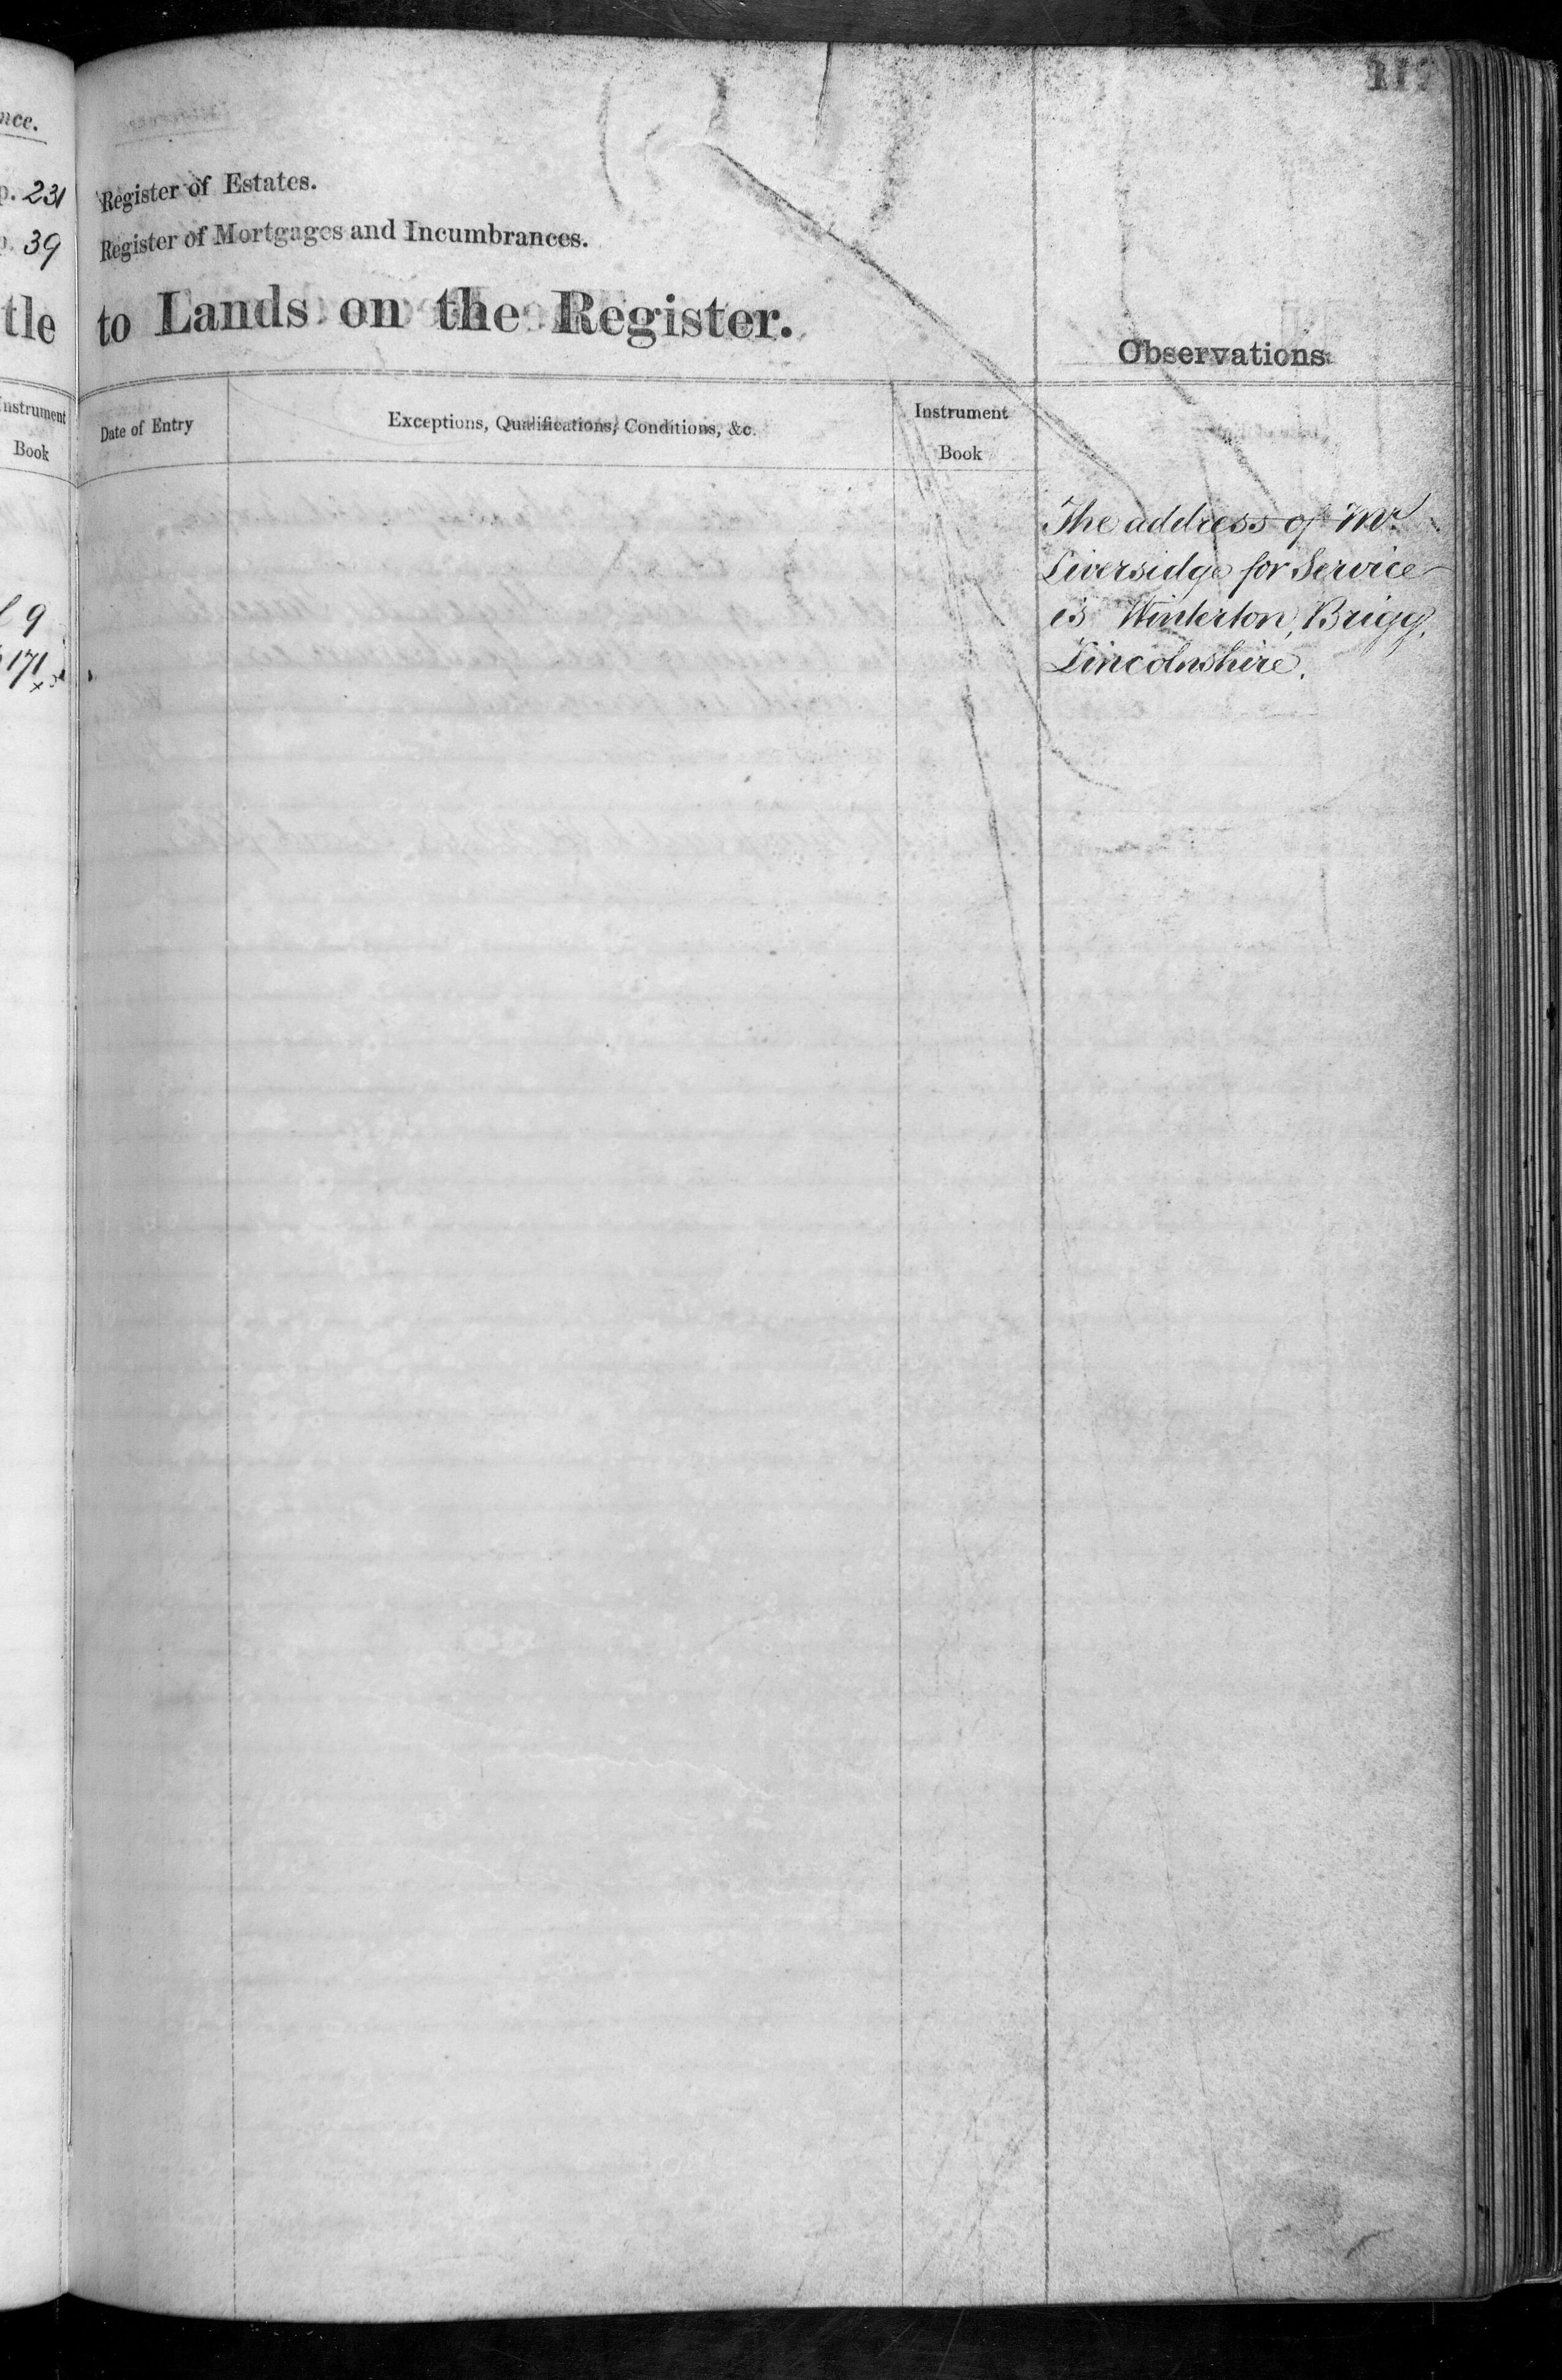 nce.
p. 231
p. 39
tle
Instrument
Book
9
171
Register of Estates.
Register of Mortgages and Incumbrances.
to Lands on the Register.
Observations
Date of Entry
Exceptions, Qualifications, Conditions, &c.
Instrument
Book
The address of Mr
Liversidge for Service
is Winterton, Brigg,
Lincolnshire.